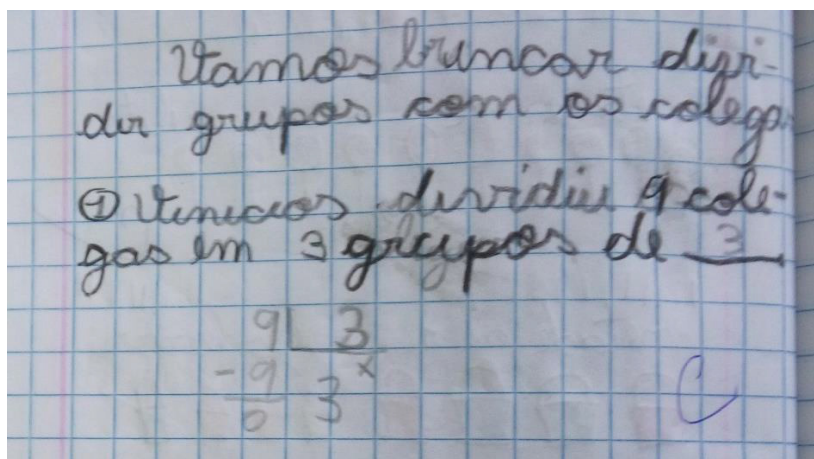 Vamos brincar divi-
dir grupos com os colegas
① Vinicios dividiu 9 cole-
gas em 3 grupos de 3
9 3
- 9 3 x
0
C